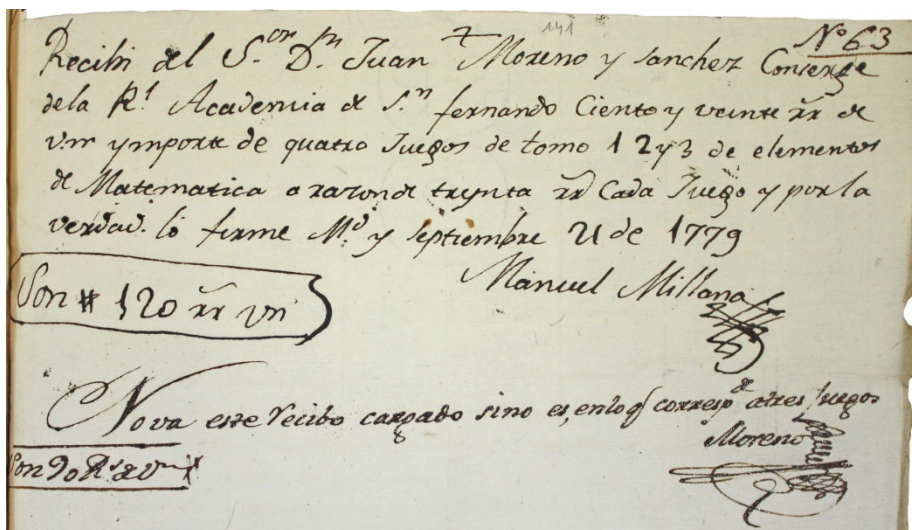 141
Nº 63
Recibi del S.or D.n Juan Moreno y Sanchez Conserge
dela R.l Academia de S.n fernando Ciento y veinte rr de
vn ymporte de quatro Juegos de tomo 1 2 y 3 de elementos
de Matematica a razon de treynta rr Cada Juego y por la
verdad lo firme M.d y septiembre 21 de 1779
Manuel Millana
Son # 120 rr vn
No va este Recibo cargado sino es, en lo q corresp.de a tres juegos
Moreno
Son 90 R.s de v.n